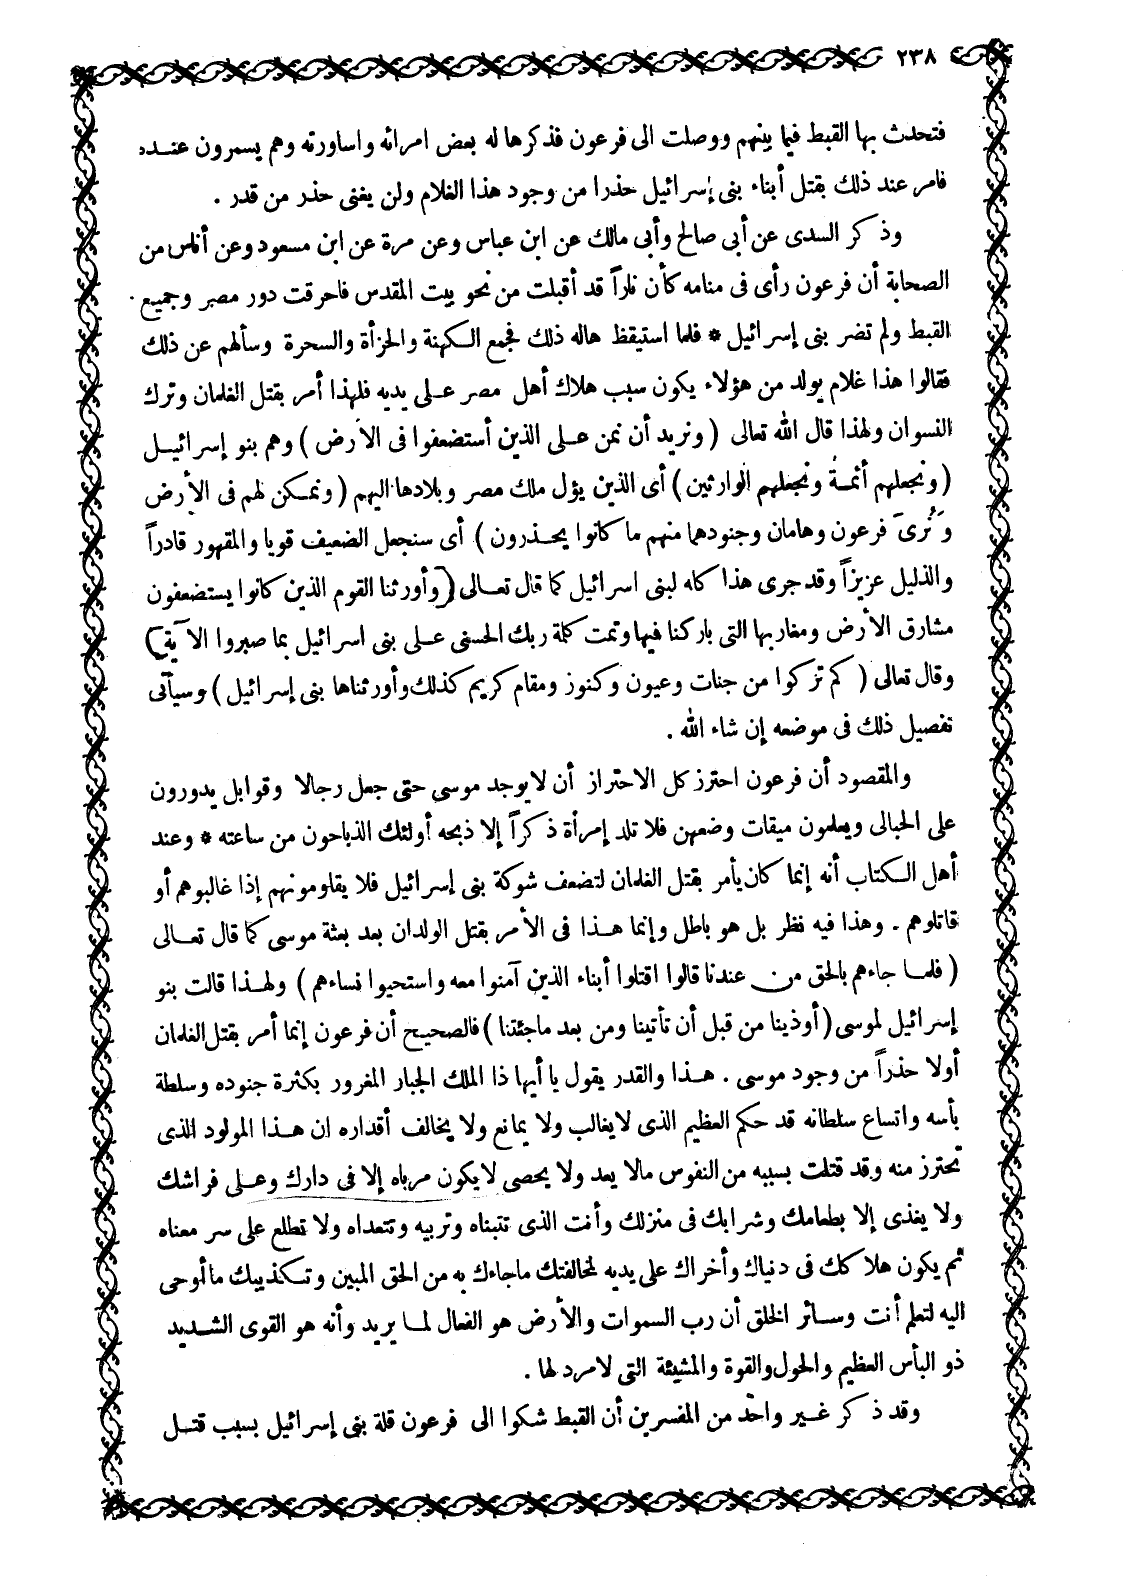 ٢٣٨
فتحدث بها القبط فيما بينهم ووصلت الى فرعون فذكرها له بعض امرائه واساورته وهم يسمرون عنده
فامر عند ذلك بقتل أبناء بنى إسرائيل حذرا من وجود هذا الغلام ولن يغنى حذر من قدر .
وذكر السدى عن أبى صالح وأبى مالك عن ابن عباس وعن مرة عن ابن مسعود وعن أناس من
الصحابة أن فرعون رأى فى منامه كأن ناراً قد أقبلت من نحو بيت المقدس فاحرقت دور مصر وجميع
القبط ولم تضر بنى إسرائيل * فلما استيقظ هاله ذلك فجمع الكهنة والحزأة والسحرة وسألهم عن ذلك
فقالوا هذا غلام يولد من هؤلاء يكون سبب هلاك أهل مصر على يديه فلهذا أمر بقتل الغلمان وترك
النسوان ولهذا قال الله تعالى ( ونريد أن نمن على الذين أستضعفوا فى الأرض ) وهم بنو إسرائيل
( ونجعلهم أئمة ونجعلهم الوارثين ) أى الذين يؤل ملك مصر وبلادها اليهم ( ونمكن لهم فى الأرض
وَنُرىَ فرعون وهامان وجنودهما منهم ما كانوا يحذرون ) أى سنجعل الضعيف قويا والمقهور قادراً
والذليل عزيزاً وقد جرى هذا كله لبنى اسرائيل كما قال تعالى ( وأورثنا القوم الذين كانوا يستضعفون
مشارق الأرض ومغاربها التى باركنا فيها وتمت كلمة ربك الحسنى على بنى اسرائيل بما صبروا الآية )
وقال تعالى ( كم تركوا من جنات وعيون وكنوز ومقام كريم كذلك وأورثناها بنى إسرائيل ) وسيأتى
تفصيل ذلك فى موضعه إن شاء الله .
والمقصود أن فرعون احترز كل الاحتراز أن لا يوجد موسى حتى جعل رجالا وقوابل يدورون
على الحبالى ويعلمون ميقات وضعهن فلا تلد إمرأة ذكراً إلا ذبحه أولئك الذباحون من ساعته * وعند
أهل الكتاب أنه إنما كان يأمر بقتل الغلمان لتضعف شوكة بنى إسرائيل فلا يقاومونهم إذا غالبوهم أو
قاتلوهم . وهذا فيه نظر بل هو باطل وإنما هذا فى الأمر بقتل الولدان بعد بعثة موسى كما قال تعالى
( فلما جاءهم بالحق من عندنا قالوا اقتلوا أبناء الذين آمنوا معه واستحيوا نساءهم ) ولهذا قالت بنو
إسرائيل لموسى ( أوذينا من قبل أن تأتينا ومن بعد ما جئتنا ) فالصحيح أن فرعون إنما أمر بقتل الغلمان
أولا حذراً من وجود موسى . هذا والقدر يقول يا أيها ذا الملك الجبار المغرور بكثرة جنوده وسلطة
بأسه واتساع سلطانه قد حكم العظيم الذى لا يغالب ولا يمانع ولا يخالف أقداره ان هذا المولود الذى
تحترز منه وقد قتلت بسببه من النفوس مالا يعد ولا يحصى لا يكون مرباه إلا فى دارك وعلى فراشك
ولا يغذى إلا بطعامك وشرابك فى منزلك وأنت الذى تتبناه وتربيه وتتعداه ولا تطلع على سر معناه
ثم يكون هلاكك فى دنياك وأخراك على يديه لمخالفتك ما جاءك به من الحق المبين وتكذيبك ما أوحى
اليه لتعلم أنت وسائر الخلق أن رب السموات والأرض هو الفعال لما يريد وأنه هو القوى الشديد
ذو البأس العظيم والحول والقوة والمشيئة التى لا مرد لها .
وقد ذكر غير واحد من المفسرين أن القبط شكوا الى فرعون قلة بنى إسرائيل بسبب قتل